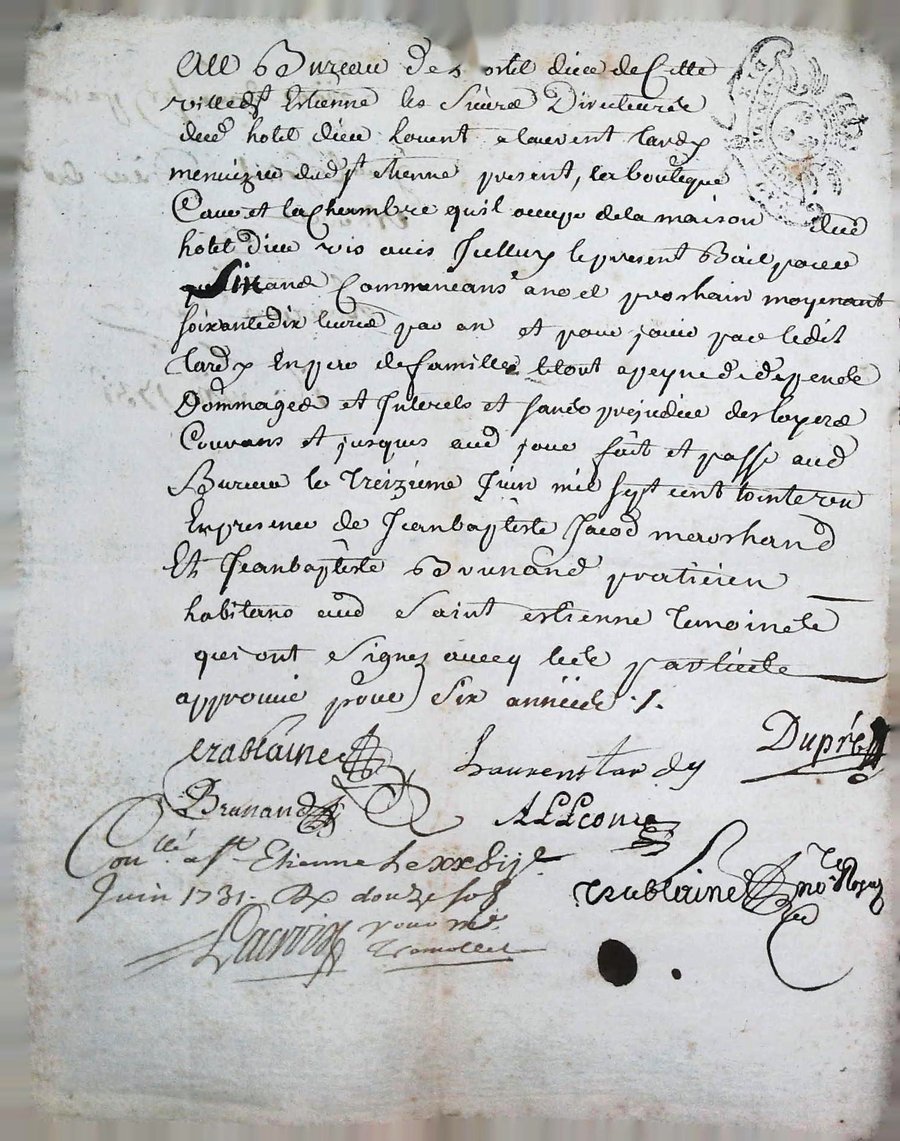 Au Bureau de L ostel dieu de Cette
ville de St Estienne les Sieurs Directeurs
dud hotel dieu Louent a laurent tardy
menuizier dud St etienne present, la boutique
Cave et la Chambre qu'il occupe de la maison dud
hotel dieu vis avis Jullien le present Bail pour
Six ans Commencans a noel prochain moyenant
soixante dix livres par an et pour jouir par ledit
tardy En pere de famille le tout a peyne de depens
Dommages et Interets et sans prejudice des loyers
Courans et jusques aud jour fait et passé aud
Bureau le Treizieme Juin mil sept cent trente un
En presence de Jean baptiste Jacod marchand
Et Jean baptiste Brunand praticien
habitans aud Saint estienne temoins
qui ont Signez avecq les parties
approuvé pour Six années /.
trablaine Laurens tar dy Dupré
Brunand ALLeon
Con.llé a St Etienne Le xxbije
Juin 1731. R douze sols trablaine
Lacroix pour mr.